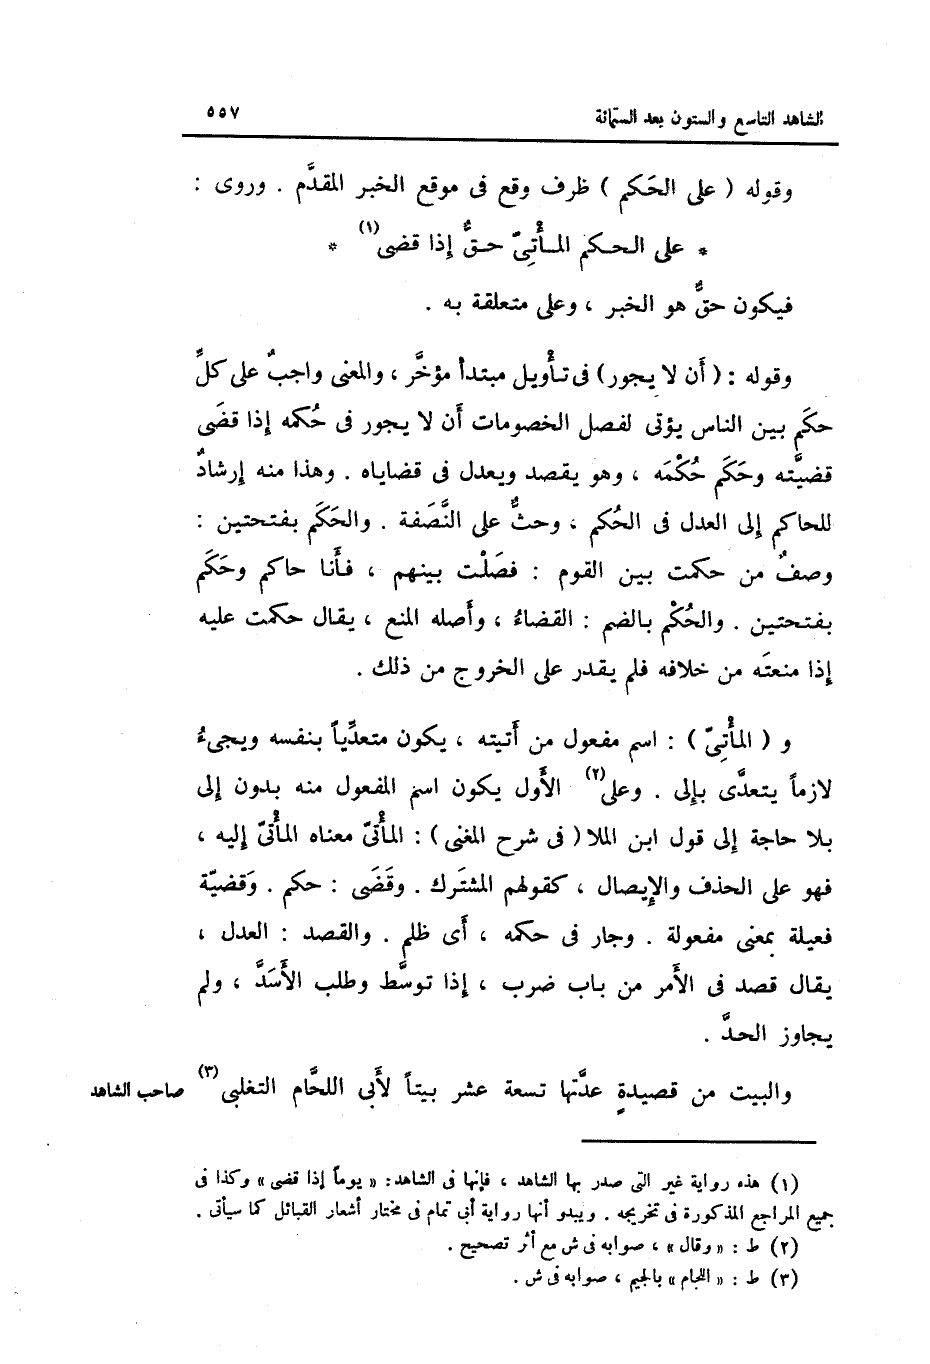 الشاهد التاسع والستون بعد الستمائة ٥٥٧
وقوله ( على الحَكم ) ظرف وقع فى موقع الخبر المقدَّم . وروى :
* على الحكم المأْتِىّ حقٌّ إذا قضى(١) *
فيكون حقٌّ هو الخبر ، وعلى متعلقة به .
وقوله : ( أَن لا يجور ) فى تأْويل مبتدأ مؤخَّر ، والمعنى واجبٌ على كلِّ
حكَمٍ بين الناس يؤتى لفصل الخصومات أَن لا يجور فى حُكمه إذا قضَى
قضيَّته وحَكَم حُكْمَه ، وهو يقصد ويعدل فى قضاياه . وهذا منه إرشادٌ
للحاكم إلى العدل فى الحُكم ، وحثٌّ على النَّصَفة . والحَكَم بفتحتين :
وصفٌ من حكمت بين القوم : فصَلْت بينهم ، فأَنا حاكم وحَكَم
بفتحتين . والحُكْم بالضم : القضاءُ ، وأَصله المنع ، يقال حكمت عليه
إذا منعتَه من خلافه فلم يقدر على الخروج من ذلك .
و ( المأْتِىّ ) : اسم مفعول من أَتيته ، يكون متعدِّياً بنفسه ويجىءُ
لازماً يتعدَّى بإلى . وعلى(٢) الأَول يكون اسم المفعول منه بدون إلى
بلا حاجة إلى قول ابن الملا ( فى شرح المغنى ) : المأْتىّ معناه المأْتىّ إليه ،
فهو على الحذف والإيصال ، كقولهم المشترَك . وقَضَى : حكم . وَقضيّة
فعيلة بمعنى مفعولة . وجار فى حكمه ، أَى ظلم . والقصد : العدل ،
يقال قصد فى الأَمر من باب ضرب ، إذا توسَّط وطلب الأَسَدَّ ، ولم
يجاوز الحدَّ .
والبيت من قصيدةٍ عدَّتها تسعة عشر بيتاً لأَبى اللحَّام التغلبى(٣) صاحب الشاهد
(١) هذه رواية غير التى صدر بها الشاهد ، فإنها فى الشاهد : « يوماً إذا قضى » وكذا فى
جميع المراجع المذكورة فى تخريجه . ويبدو أنها رواية أبى تمام فى مختار أشعار القبائل كما سيأتى .
(٢) ط : « وقال » ، صوابه فى ش مع أثر تصحيح .
(٣) ط : « اللجام » بالجيم ، صوابه فى ش .